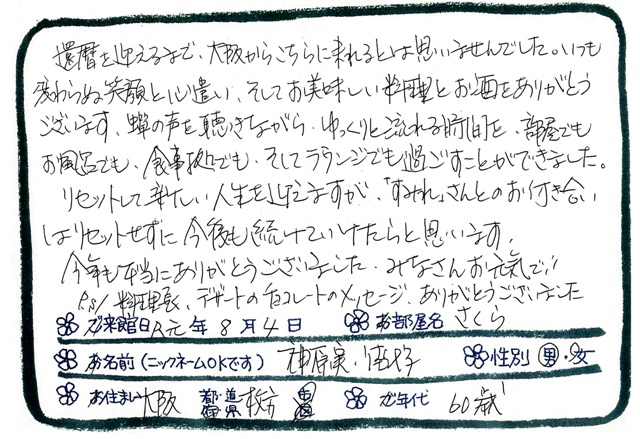 還暦を迎えるまで、大阪からこちらに来れるとは思いませんでした。いつも
変わらぬ笑顔と心遣い、そしてお美味しい料理とお酒をありがとう
ございます。蝉の声を聴きながら、ゆっくりと流れる時間を、部屋でも
お風呂でも、食事処でも、そしてラウンジでも過ごすことができました。
リセットして新しい人生を迎えますが、「すみれ」さんとのお付き合い
はリセットせずに今後も続けていけたらと思います。
今年も本当にありがとうございました。みなさんお元気で!!
P.S/ 料理長、デザートのチョコレートのメッセージ、ありがとうございました
ご来館日 R元年 8月4日 お部屋名 さくら
お名前(ニックネームOKです) 神原実・
性別 男・女
お住まい 大阪 都・道・府・県 枚方 市 ご年代 60歳!